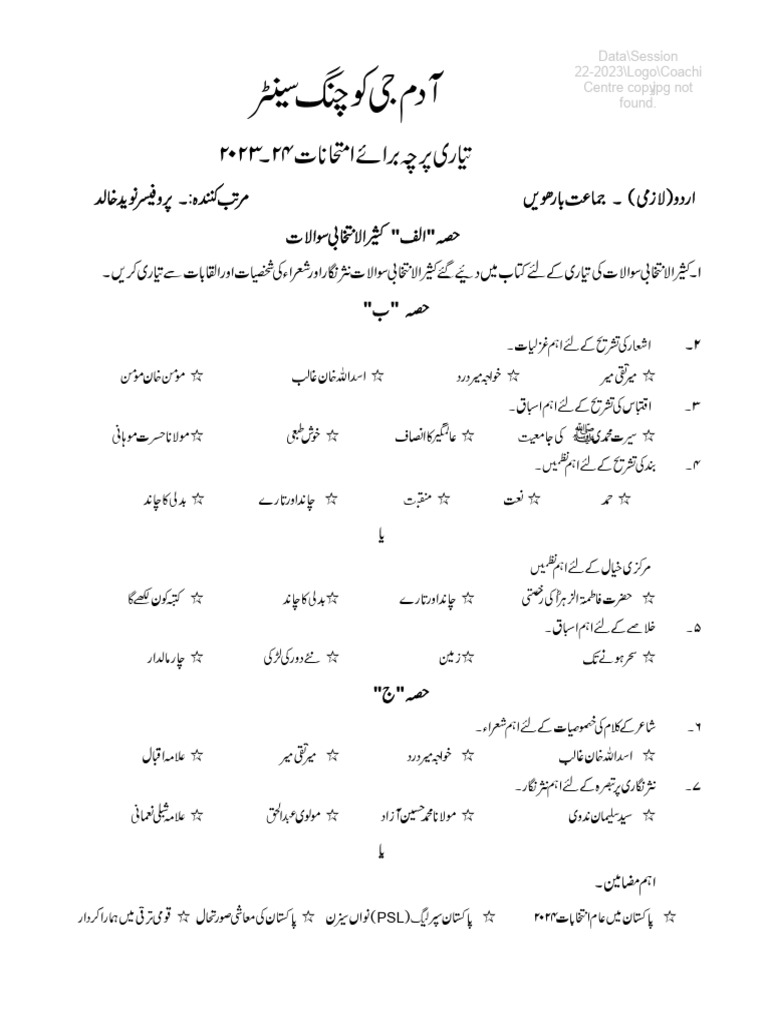 Data\Session
22-2023\Logo\Coachi
Centre copy.jpg not
found.
آدم جی کوچنگ سینٹر
تیاری پرچہ برائے امتحانات ۲۴۔۲۰۲۳
اردو(لازمی) ۔ جماعت بارھویں مرتب کنندہ:۔ پروفیسر نوید خالد
حصہ "الف" کثیر الانتخابی سوالات
۱۔ کثیر الانتخابی سوالات کی تیاری کے لئے کتاب میں دیئے گئے کثیر الانتخابی سوالات نثر نگار اور شعراء کی شخصیات اور القابات سے تیاری کریں۔
حصہ "ب"
۲۔ اشعار کی تشریح کے لئے اہم غزلیات۔
☆ میر تقی میر ☆ خواجہ میر درد ☆ اسد اللہ خان غالب ☆ مؤمن خان مؤمن
۳۔ اقتباس کی تشریح کے لئے اہم اسباق۔
☆ سیرت محمدی ﷺ کی جامعیت ☆ عالمگیر کا انصاف ☆ خوش طبعی ☆ مولانا حسرت موہانی
۴۔ بند کی تشریح کے لئے اہم نظمیں۔
☆ حمد ☆ نعت ☆ منقبت ☆ چاند اور تارے ☆ بدلی کا چاند
یا
مرکزی خیال کے لئے اہم نظمیں
☆ حضرت فاطمۃ الزہرؓا کی رخصتی ☆ چاند اور تارے ☆ بدلی کا چاند ☆ کتبہ کون لکھے گا
۵۔ خلاصے کے لئے اہم اسباق۔
☆ سحر ہونے تک ☆ زمین ☆ نئے دور کی لڑکی ☆ چار مالدار
حصہ "ج"
۶۔ شاعر کے کلام کی خصوصیات کے لئے اہم شعراء۔
☆ اسد اللہ خان غالب ☆ خواجہ میر درد ☆ میر تقی میر ☆ علامہ اقبال
۷۔ نثر نگاری پر تبصرہ کے لئے اہم نثر نگار۔
☆ سید سلیمان ندوی ☆ مولانا محمد حسین آزاد ☆ مولوی عبدالحق ☆ علامہ شبلی نعمانی
یا
اہم مضامین۔
☆ پاکستان میں عام انتخابات ۲۰۲۴ ☆ پاکستان سپر لیگ (PSL) نواں سیزن ☆ پاکستان کی معاشی صورتحال ☆ قومی ترقی میں ہمارا کردار